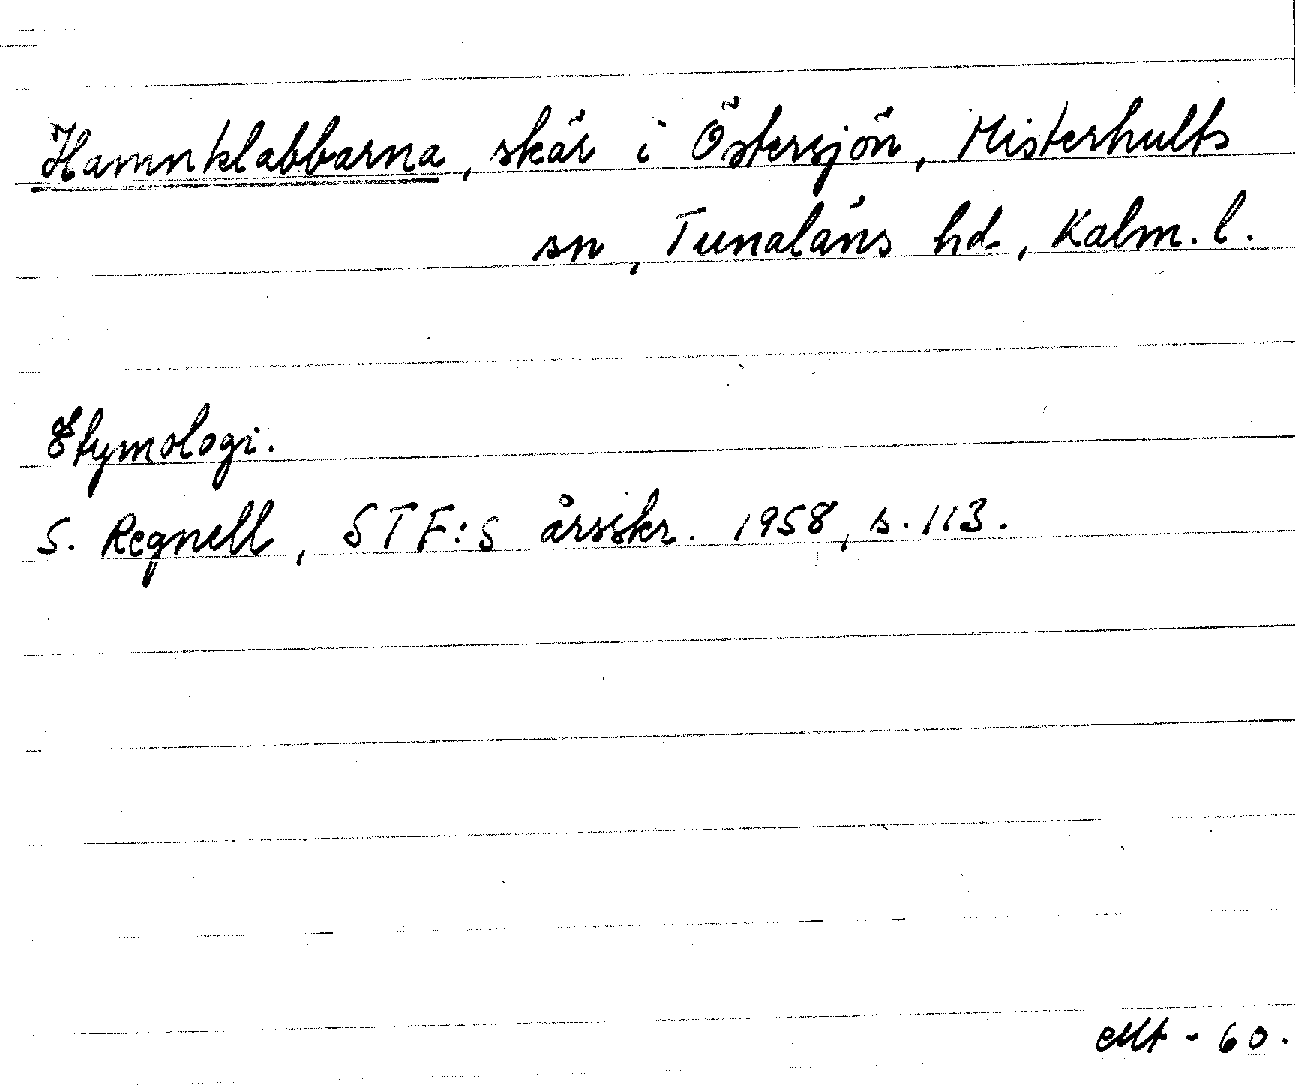 Hamnklabbarna, skär i Östersjön, Misterhults
sn, Tunaläns hd, Kalm. l.
Etymologi.
S. Regnell, STF:s årsskr. 1958, s. 113.
- 60.